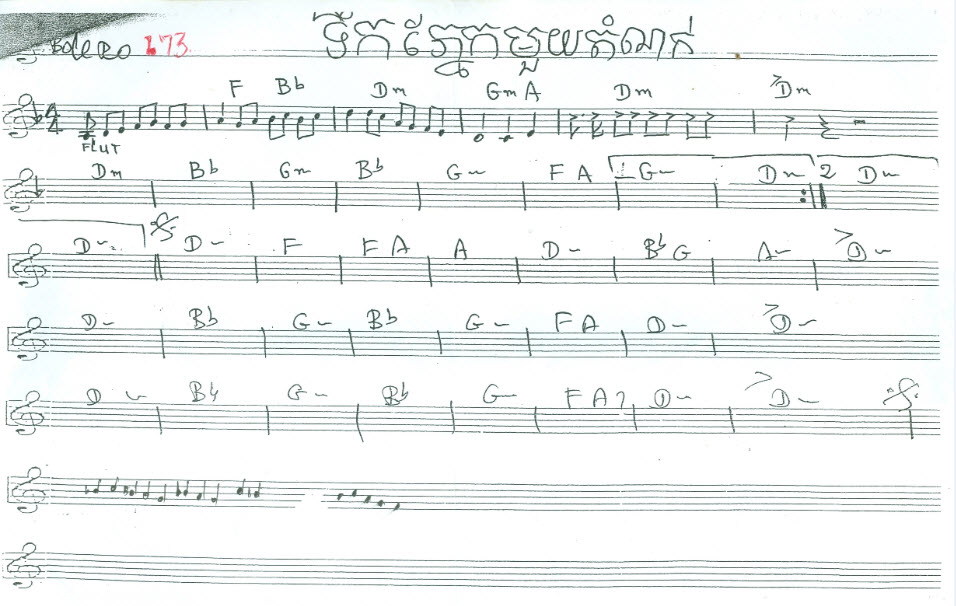 ទឹកភ្នែកមួយតំណក់
Bolero 173
F Bb Dm Gm A Dm Dm
4 4
FLUT
Dm Bb Gm Bb Gm F A 1 Gm Dm 2 Dm
Dm Dm F F A A Dm Bb G Am Dm
Dm Bb Gm Bb Gm F A Dm Dm
Dm Bb Gm Bb Gm F A7 Dm Dm